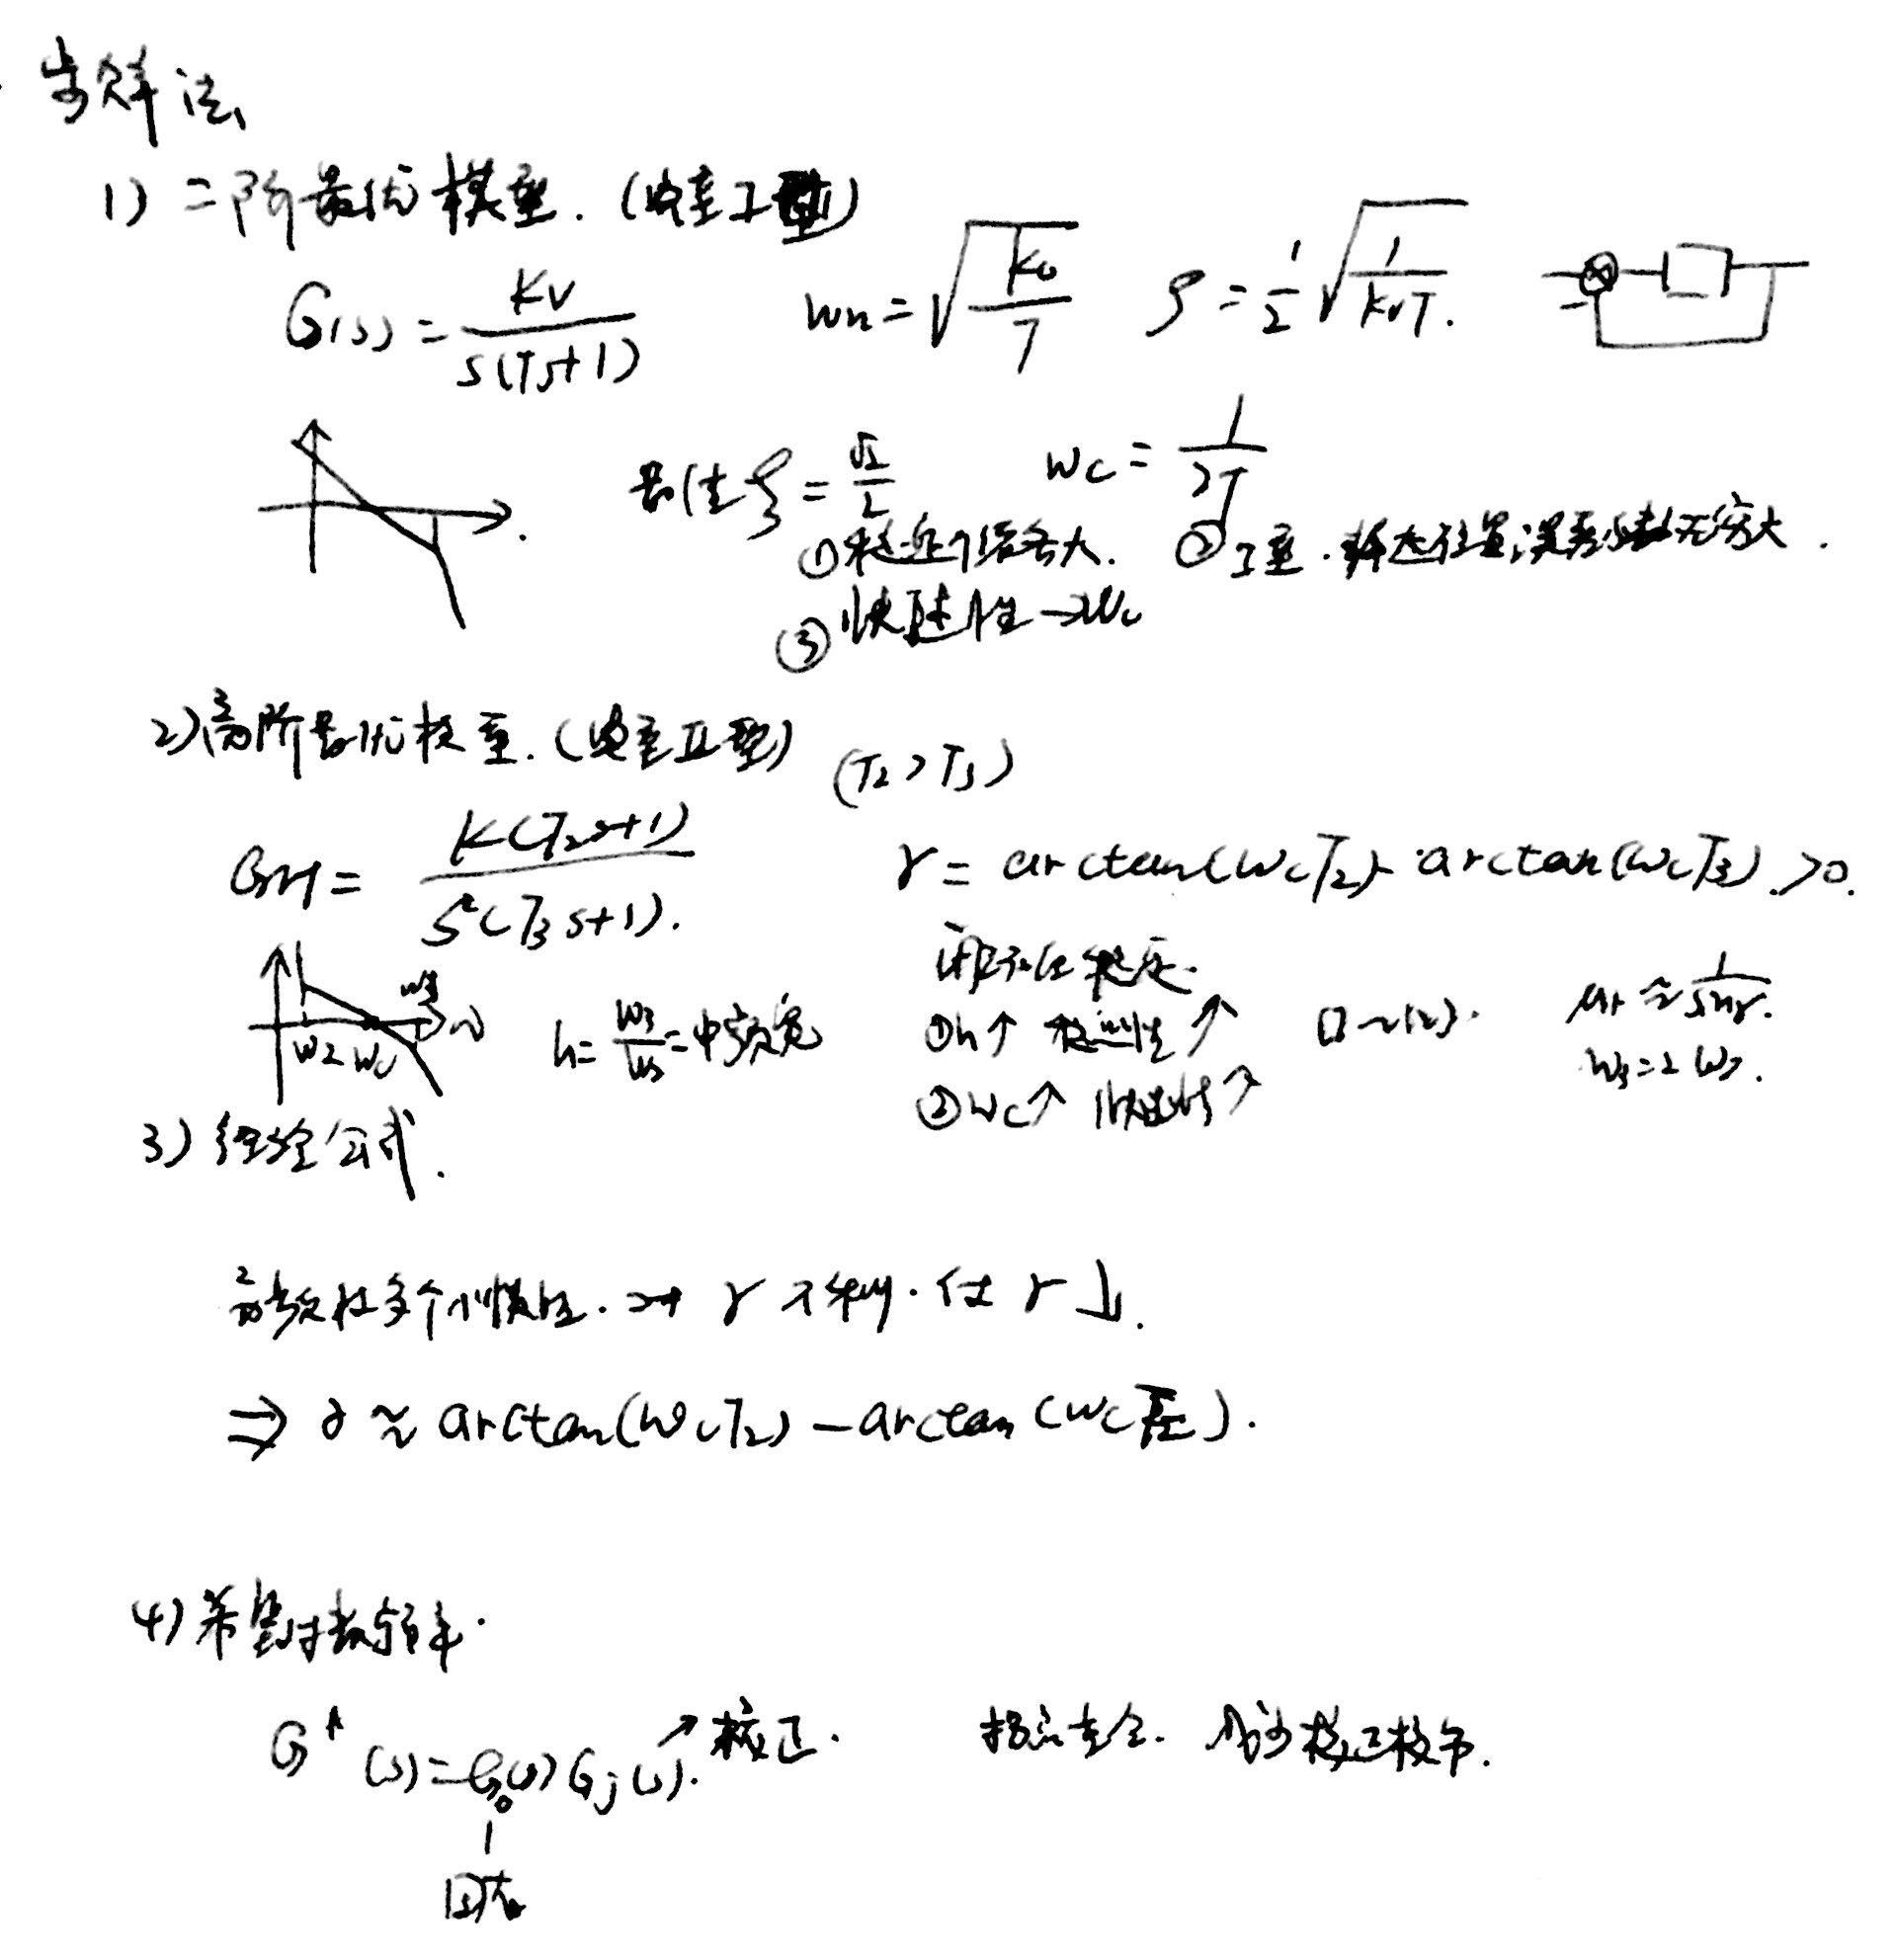 1) 二阶最优模型. (典型I型)
G(s) = Kv / s(Ts+1) wn = √(Kv/T) ξ = 1/2 √(1/KvT).
最佳ξ = √2/2 wc = 1/2T
① 稳定裕量大. ② I型. 静态位置误差系数无穷大.
③ 快速性 → wc
2) 高阶最优模型. (典型II型) (T2 > T3)
G(s) = K(T2s+1) / s²(T3s+1). γ = arctan(wcT2) - arctan(wcT3) > 0.
w3
w2 wc
h = w3/w2 = 中频宽
① h↑ 稳定性↑ Mr ≈ 1/sinγ.
② wc↑ 快速性↑
3) 经验公式.
高频段多个小惯性. → γ 不利. 使 γ ↓.
⇒ γ ≈ arctan(wcT2) - arctan(wcTΣ).
4) 希望对数频率.
G*(s) = G0(s) Gj(s). ↗ 校正.
固有